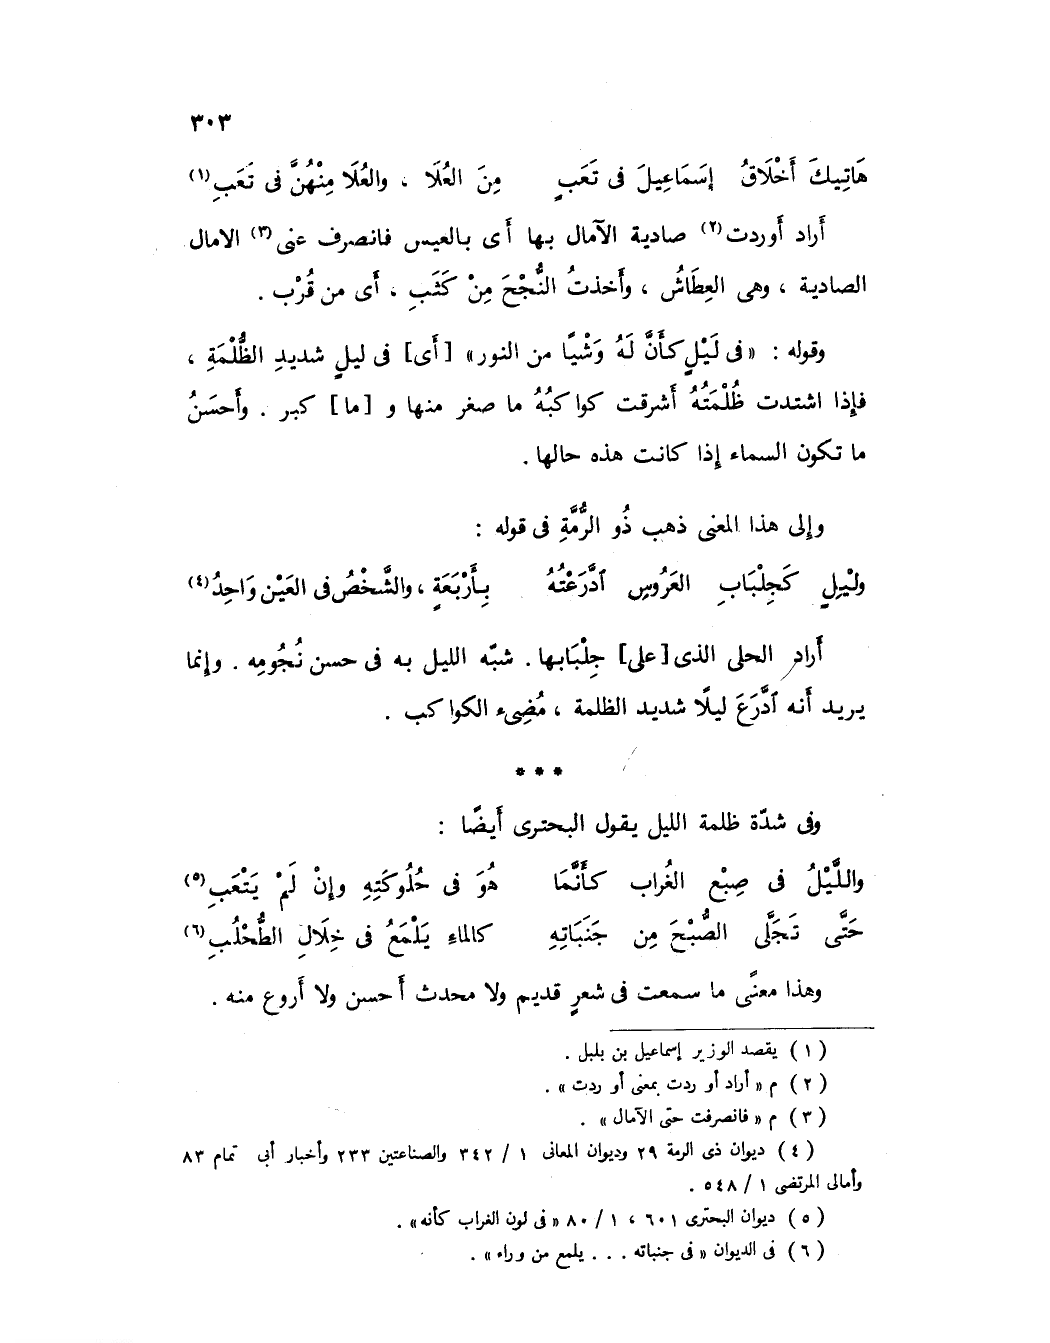 ٣٠٣
هَاتِيكَ أَخْلَاقُ إسَمَاعِيلَ فى تَعَبٍ مِنَ العُلَا ، والعُلَا مِنْهُنَّ فى تَعَبِ(١)
أراد أوردت(٢) صادية الآمال بها أى بالعيس فانصرف عنى(٣) الامال
الصادية ، وهى العِطَاشُ ، وأخذتُ النُّجْحَ مِنْ كَثَبِ ، أى من قُرْب .
وقوله : « فى لَيْلٍ كأنَّ لَهُ وَشْيًا من النور» [أى] فى ليلٍ شديدِ الظُّلْمَةِ ،
فإذا اشتدت ظُلْمَتُهُ أشرقت كواكبُهُ ما صغر منها و [ما] كبر . وأحسَنُ
ما تكون السماء إذا كانت هذه حالها .
وإلى هذا المعنى ذهب ذُو الرُّمَّةِ فى قوله :
ولْيلٍ كَجِلْبَابِ العَرُوسِ ٱدَّرَعْتُهُ بِأَرْبَعَةٍ ، والشَّخْصُ فى العَيْن وَاحِدُ(٤)
أراد الحلى الذى [على] جِلْبَابها. شبّه الليل به فى حسن نُجُومِه . وإنما
يريد أنه ٱدَّرَعَ ليلًا شديد الظلمة ، مُضِىء الكواكب .
* * *
وفى شدّة ظلمة الليل يقول البحترى أيضًا :
واللَّيْلُ فى صِبْع الغُراب كأَنَّمَا هُوَ فى حُلُوكَتِهِ وإنْ لَمْ يَنْعَبِ(٥)
حَتَّى تَجَلَّى الصُّبْحَ مِن جَنَبَاتِهِ كالماءِ يَلْمَعُ فى خِلَالِ الطُّحْلُبِ(٦)
وهذا معنًى ما سمعت فى شعرٍ قديم ولا محدث أحسن ولا أروع منه .
(١) يقصد الوزير إسماعيل بن بلبل .
(٢) م « أراد أو ردت بمعنى أو ردت » .
(٣) م « فانصرفت حتى الآمال » .
(٤) ديوان ذى الرمة ٢٩ وديوان المعانى ١ / ٣٤٢ والصناعتين ٢٣٣ وأخبار أبى تمام ٨٣
وأمالى المرتضى ١ / ٥٤٨ .
(٥) ديوان البحترى ٦٠١ ، ١ / ٨٠ « فى لون الغراب كأنه» .
(٦) فى الديوان « فى جنباته . . . يلمع من وراء» .